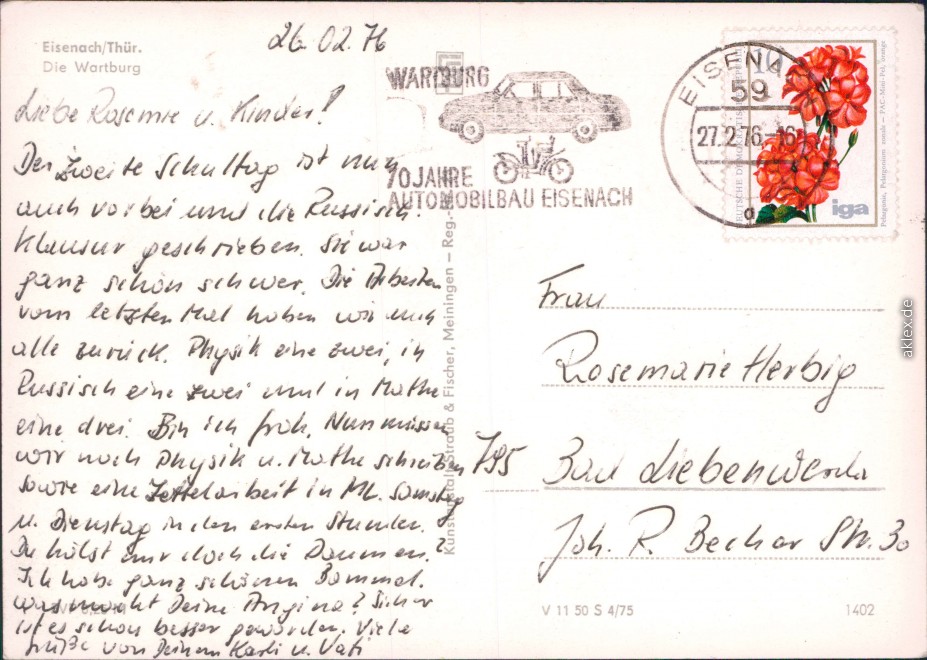 Eisenach/Thür.
Die Wartburg
26.02.76
Liebe Rosemie u. Kinder!
Der zweite Schultag ist nun
auch vorbei und die Russisch-
Klausur geschrieben. Sie war
ganz schön schwer. Die Arbeiten
vom letzten Mal haben wir auch
alle zurück. Physik eine zwei, in
Russisch eine zwei und in Mathe
eine drei. Bin ich froh. Nun müssen
wir noch Physik u. Mathe schreiben
sowie eine Zettelarbeit in ML. Samstag
u. Dienstag in den ersten Stunden.
Du hälst mir doch die Daumen?
Ich habe ganz schönen Bammel.
Was macht Deine Angina? Sicher
ist es schon besser geworden. Viele
Grüße von Deinem Karli u. Vati
Kunstanstalt Straub & Fischer, Meiningen – Reg.-
WARTBURG
70 JAHRE
AUTOMOBILBAU EISENACH
EISENA
59
27.2.76-16
a
10
DEUTSCHE DEMOKRATISCHE
iga
Frau
Rosemarie Herbig
795 Bad Liebenwerda
Joh. R. Becher Str. 30
V 11 50 S 4/75
1402
aklex.de